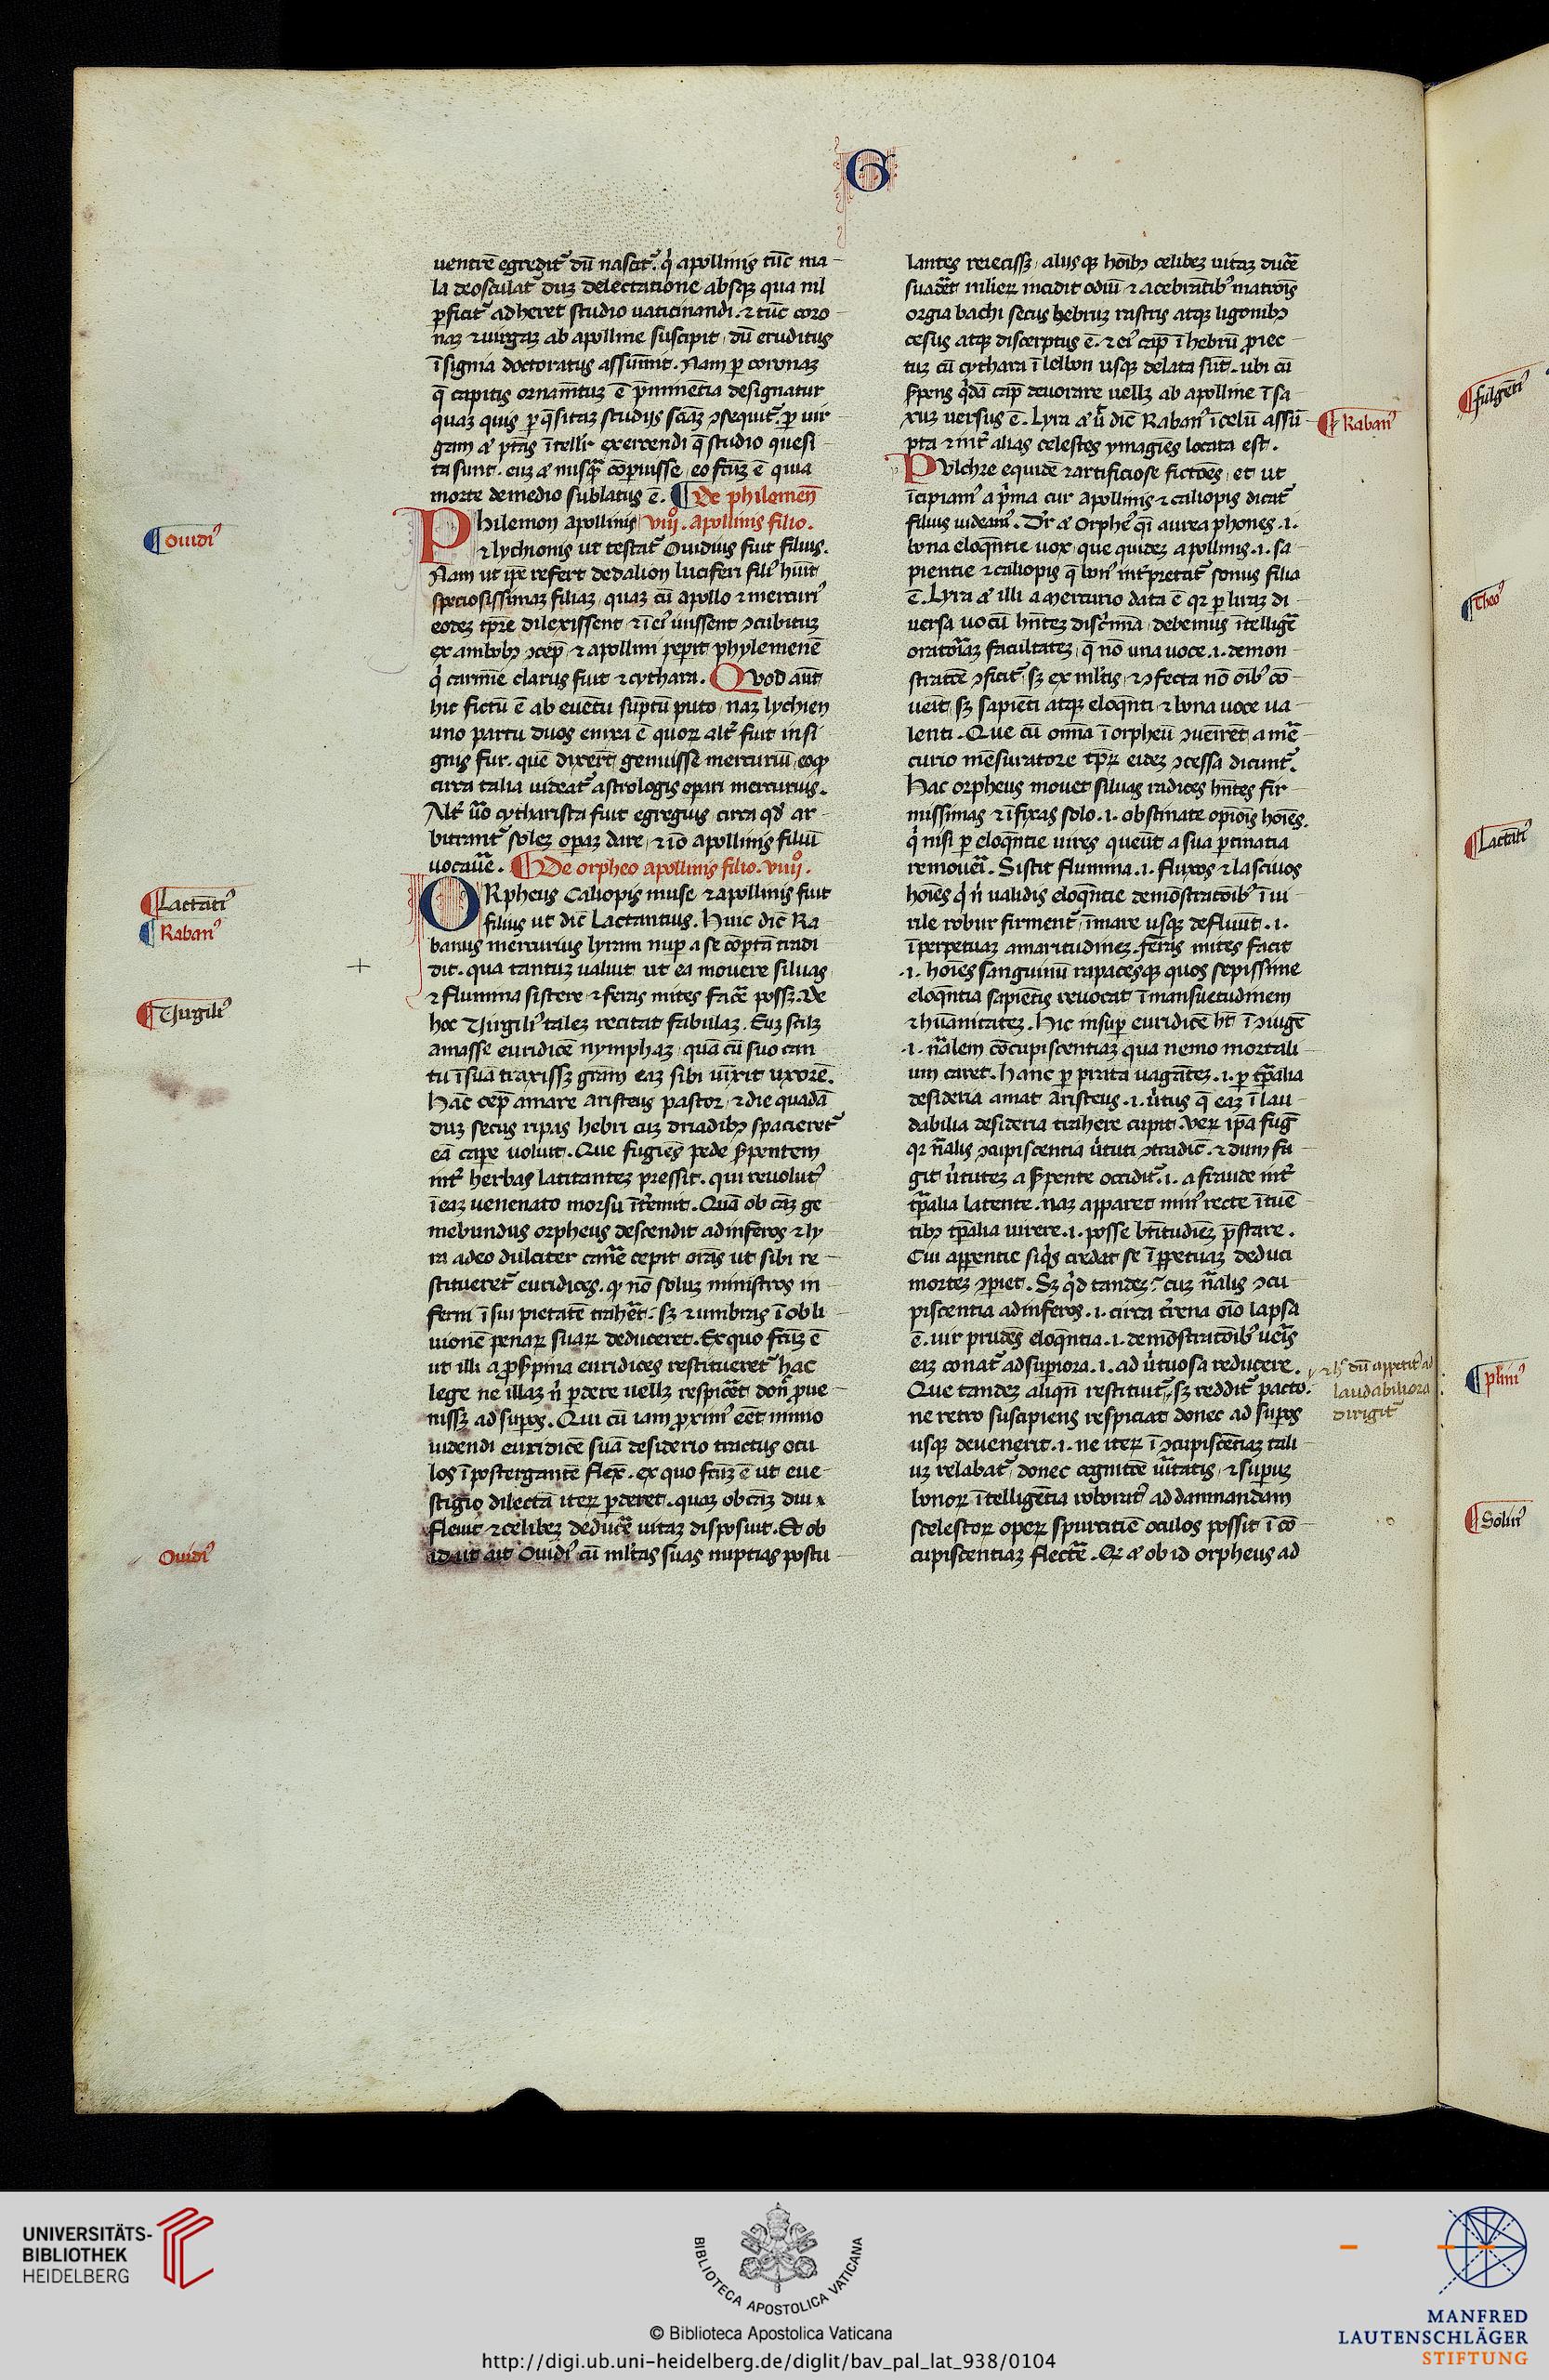 G
uentrē egredit᷑ dū nascit᷑. q̇ apollinis tūc ma-
la deosculat᷑ duꝫ delectatione absqꝫ qua nil
ꝑficit᷑ adheret studio uaticinandi. ⁊ tūc coro-
naꝫ ⁊ uirgaꝫ ab apolline suscipit, dū eruditus
īsignia doctoratus assūmit. Nam ꝑ coronaꝫ
q̄ capitis ornam̄tuꝫ ē p̄minentia designatur
quaꝫ quis ꝑ q̄sitaꝫ studijs scīaꝫ ↄsequit᷑. ꝑ uir-
gam
exercendi q̄ studio quesi-
ta sunt.
eo fcūꝫ ē quia
morte demedio sublatus ē. ¶ De philemon̄
Philemon apollinis, viiiͦ. apollinis filio.
⁊ lychionis ut testat᷑ Ouidius fuit filius.
Nam ut ip̄e refert dedalion luciferi filiꝰ hūit
speciosissimaꝫ filiaꝫ, quaꝫ cū apollo ⁊ mercuriꝰ
eodeꝫ tp̄re dilexissent, ⁊ ī eiꝰ iuissent ↄcubituꝫ
ex ambobꝫ ↄcep̄, ⁊ apollini peperit phylemenē
q̇ carmīe clarus fuit ⁊ cythara. Quod aūt
hic fictū ē ab euentu sūptū puto, naꝫ lychien
uno partu duos enixa ē quoꝝ alt᷑ fuit insi-
gnis fur. quē dixer̄t genuisse mercuriū, eo ꝙ
circa talia uideat᷑ astrologis opari mercurius.
Alt᷑ u̾o cytharista fuit egregius, circa qd̾ ar-
bitrant᷑ soleꝫ opaꝫ dare, ⁊ iō apollinis filiū
uocaue᷑. ¶ De orpheo apollinis filio. viiijͦ.
ORpheus Caliopis muse ⁊ apollinis fuit
filius ut dic̄ Lactantius. Huic dic̄ Ra-
banus mercurius lyram nuꝑ a se cōptā tradi-
dit. qua tantuꝫ ualuit ut ea mouere siluas
⁊ flumina sistere, ⁊ feras mites fac̄e possꝫ. De
hoc Virgiliꝰ taleꝫ recitat fabulaꝫ. Euꝫ scilꝫ
amasse euridicē nymphaꝫ, quā cū suo can-
tu ī suā traxissꝫ grām eaꝫ sibi uīxit uxorē.
Hāc cep̄ amare aristeus pastor, ⁊ die quadā
duꝫ secus ripas hebri cuꝫ driadibꝫ spacieret᷑
eā caꝑe uoluit. Que fugiēs pede ẜpentem
int᷑ herbas latitanteꝫ pressit. qui reuolutꝰ
ī eaꝫ uenenato morsu īt᷑emit. Quā ob cāꝫ ge-
mebundus orpheus descendit ad inferos, ⁊ ly-
ra adeo dulciter cane᷑ cepit orās ut sibi re-
stitueret᷑ euridices. ꝙ nō soluꝫ ministros in-
ferni ī sui pietatē trah̄et: sꝫ ⁊ umbras ī obli-
uionē penaꝝ suaꝝ deduceret. Ex quo fcūꝫ ē
ut illi a ꝓẜpina euridices restitueret᷑ hac
lege ne illaꝫ n̄ ꝑdere uellꝫ respic̄et don̄ ꝓue-
nissꝫ ad suꝑos. Qui cū iam ꝓximꝰ eēt nimio
uidendi euridicē suā desiderio tractus ocu-
los ī postergantē flex̄. ex quo fcūꝫ ē ut eue-
stigio dilectā iteꝝ ꝑderet. quaꝫ ob cāꝫ diu
fleuit ⁊ celibeꝫ deduc̄e uitaꝫ disposuit. Et ob
id ut ait Ouidiꝰ cū ml̾tas suas nuptias postu-
lantes reiecissꝫ, alijs qꝫ hoībꝫ celibeꝫ uitaꝫ duc̄e
suad̄et mlieꝝ incidit odiū ⁊ a celebrātibꝰ matrōis
orgia bachi secus hebruꝫ rastris atqꝫ ligonibꝫ
cesus atqꝫ discerptus ē. ⁊ eiꝰ cap̄ ī hebrū ꝓiec-
tuꝫ cū cythara ī lesbon usqꝫ delata sūt. ubi cū
ẜpens q̇dā cap̄ deuorare uellꝫ ab apolline ī sa-
xuꝫ uersus ē. Lyra
dic̄ Rabanꝰ ī celū assū-
pta ⁊ int᷑ alias celestes ymagīes locata est.
Pulchre equidē ⁊ artificiose fictōēs, et ut
īcipiamꝰ a p̄ma cur apollinis ⁊ caliopis dicat᷑
filius uideamꝰ. Dr̄
Orpheꝰ q̄i aurea phones .i.
bona eloq̄ntie uox, que quideꝫ apollinis .i. sa-
pientie ⁊ caliopis q̄ bonꝰ int᷑pretat᷑ sonus filia
ē. Lyra
illi a mercurio data ē qꝛ ꝑ liraꝫ di-
uersa uocū hn̄teꝫ disc̄mīa, debemus ītellig̾e
oratoriaꝫ facultateꝫ, q̄ nō una uoce .i. demon-
stratōē ↄficit᷑ sꝫ ex ml̾tis, ⁊ ↄfecta nō oībꝰ cō-
uēit, sꝫ sapiēti atqꝫ eloq̄nti ⁊ bona uoce ua-
lenti. Que cū omīa ī orpheū ↄueīrēt, a m̾e-
curio mēsuratore tp̄ꝝ eideꝫ ↄcessa dicunt᷑.
Hac orpheus mouet siluas radices hn̄tes fir-
missimas ⁊ īfixas solo .i. obstinate opīōis hoīes.
q̇ nisi ꝑ eloq̄ntie uires queūt a sua ꝑtinatia
remoueri. Sistit flumina .i. fluxos ⁊ lasciuos
hoīes q̇ n̄ ualidis eloq̄ntie demōstratōībꝰ ī ui-
rile robur firment᷑, ī mare usqꝫ defluūt .i.
ī perpetuaꝫ amaritudineꝫ. feras mites facit
.i. hoīes sanguinū rapacesqꝫ quos sepissime
eloq̄ntia sapiētis reuocat ī mansuetudinem
⁊ hūanitateꝫ. Hic insuꝑ euridicē ht̄ ī ↄiugē
.i. nālem cōcupiscentiaꝫ qua nemo mortali-
um caret. Hanc ꝑ prata uagāteꝫ .i. ꝑ tp̄alia
desideria amat aristeus .i. u̾tus q̄ eaꝫ ī lau-
dabilia desideria trahere cupit. Veꝝ ip̄a fug̾
qꝛ nālis ↄcupiscentia u̾tuti ↄtradic̄. ⁊ dum fu-
git u̾tuteꝫ a ẜpente occidit᷑ .i. a fraude int᷑
tp̄alia latente. naꝫ apparet minꝰ recte ītuē-
tibꝫ tp̄alia uirere .i. posse btītudīeꝫ p̄stare.
Cui apparentie siq̇s credat se ī ꝑpetuaꝫ deduci
morteꝫ ↄpiet. Sꝫ q̇d tandeꝫ? cuꝫ nālis ↄcu-
piscentia ad inferos .i. circa t᷑rena oīo lapsa
ē. uir prudēs eloq̄ntia .i. demōstratōībꝰ ueris
eaꝫ conat᷑ ad suꝑiora .i. ad u̾tuosa reducere.
Que tandeꝫ aliqn̄ restituit᷑, sꝫ reddit᷑ pacto.
ne retro suscipiens respiciat donec ad suꝑos
usqꝫ deuenerit .i. ne iteꝝ ī ↄcupiscētiaꝫ tali-
uꝫ relabat᷑, donec cognitōē u̾itatis, ⁊ suꝑuꝫ
bonoꝝ ītelligētia roboratꝰ ad damnandam
scelestoꝝ opeꝝ spurcitiē oculos possit ī cō-
cupiscentiaꝫ flect̾e.
ob id orpheus ad
¶ Ouidiꝰ
¶ Lactātiꝰ
¶ Rabanꝰ
¶ Virgiliꝰ
Ouidiꝰ
¶ Rabanꝰ
dū appetitꝰ ad
laudabiliora
dirigit᷑
¶ fulgētiꝰ
¶ Theoꝰ
¶ Lactātiꝰ
¶ pliniꝰ
¶ Soliꝰ
UNIVERSITÄTS-
BIBLIOTHEK
HEIDELBERG
BIBLIOTECA APOSTOLICA VATICANA
© Biblioteca Apostolica Vaticana
http://digi.ub.uni-heidelberg.de/diglit/bav_pal_lat_938/0104
MANFRED
LAUTENSCHLÄGER
STIFTUNG